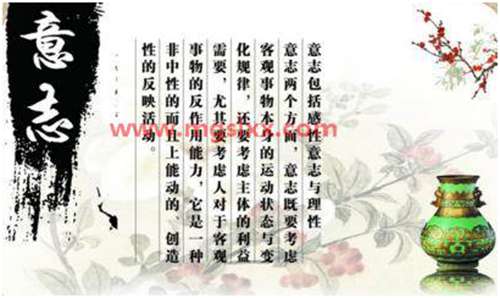 意志
意志包括感性意志与理性
意志两个方面，意志既要考虑
客观事物本身的运动状态与变
化规律，还要考虑主体的利益
需要，尤其要考虑人对于客观
事物的反作用能力，它是一种
非中性的而且上能动的、创造
性的反映活动。